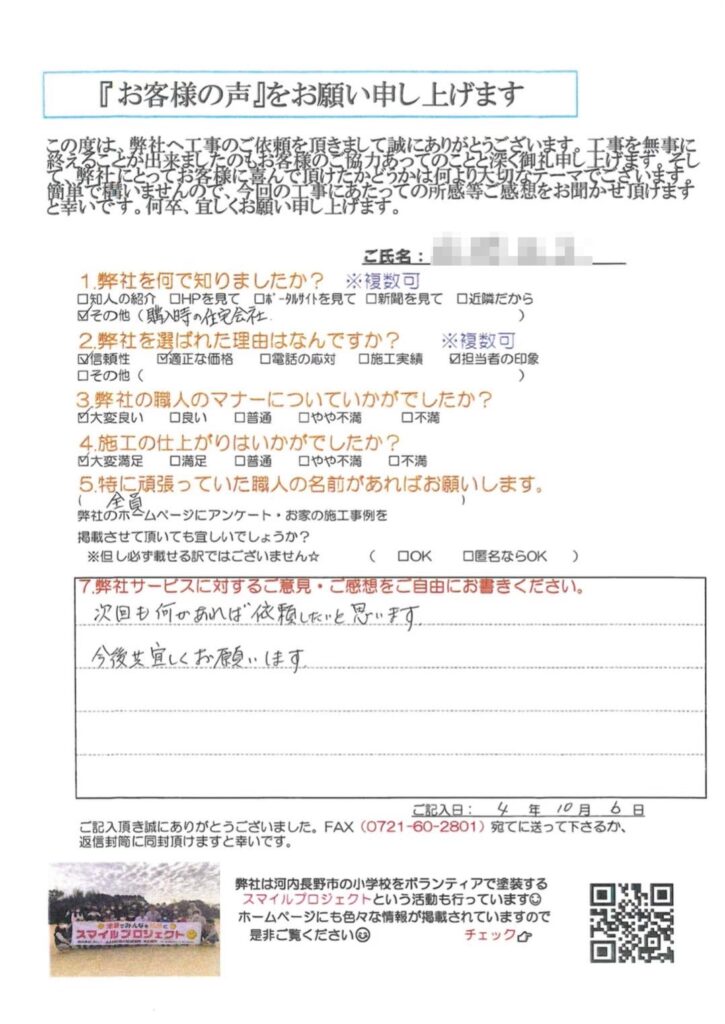 『お客様の声』をお願い申し上げます
この度は、弊社へ工事のご依頼を頂きまして誠にありがとうございます。工事を無事に
終えることが出来ましたのもお客様のご協力あってのことと深く御礼申し上げます。そし
て、弊社にとってお客様に喜んで頂けたかどうかは何より大切なテーマでございます。
簡単で構いませんので、今回の工事にあたっての所感等ご感想をお聞かせ頂けます
と幸いです。何卒、宜しくお願い申し上げます。
ご氏名：
1.弊社を何で知りましたか？ ※複数可
□知人の紹介 □HPを見て □ポータルサイトを見て □新聞を見て □近隣だから
☑その他（購入時の住宅会社 ）
2.弊社を選ばれた理由はなんですか？ ※複数可
☑信頼性 ☑適正な価格 □電話の応対 □施工実績 ☑担当者の印象
□その他（ ）
3.弊社の職人のマナーについていかがでしたか？
☑大変良い □良い □普通 □やや不満 □不満
4.施工の仕上がりはいかがでしたか？
☑大変満足 □満足 □普通 □やや不満 □不満
5.特に頑張っていた職人の名前があればお願いします。
（ 全員 ）
弊社のホームページにアンケート・お家の施工事例を
掲載させて頂いても宜しいでしょうか？
※但し必ず載せる訳ではございません☆ （ □OK □匿名ならOK ）
7.弊社サービスに対するご意見・ご感想をご自由にお書きください。
次回も何かあれば依頼したいと思います
今後共宜しくお願いします
ご記入日： 4 年 10 月 6 日
ご記入頂き誠にありがとうございました。FAX（0721-60-2801）宛てに送って下さるか、
返信封筒に同封頂けますと幸いです。
弊社は河内長野市の小学校をボランティアで塗装する
スマイルプロジェクトという活動も行っています☺
ホームページにも色々な情報が掲載されていますので
是非ご覧ください☺ チェック☞
スマイルプロジェクト